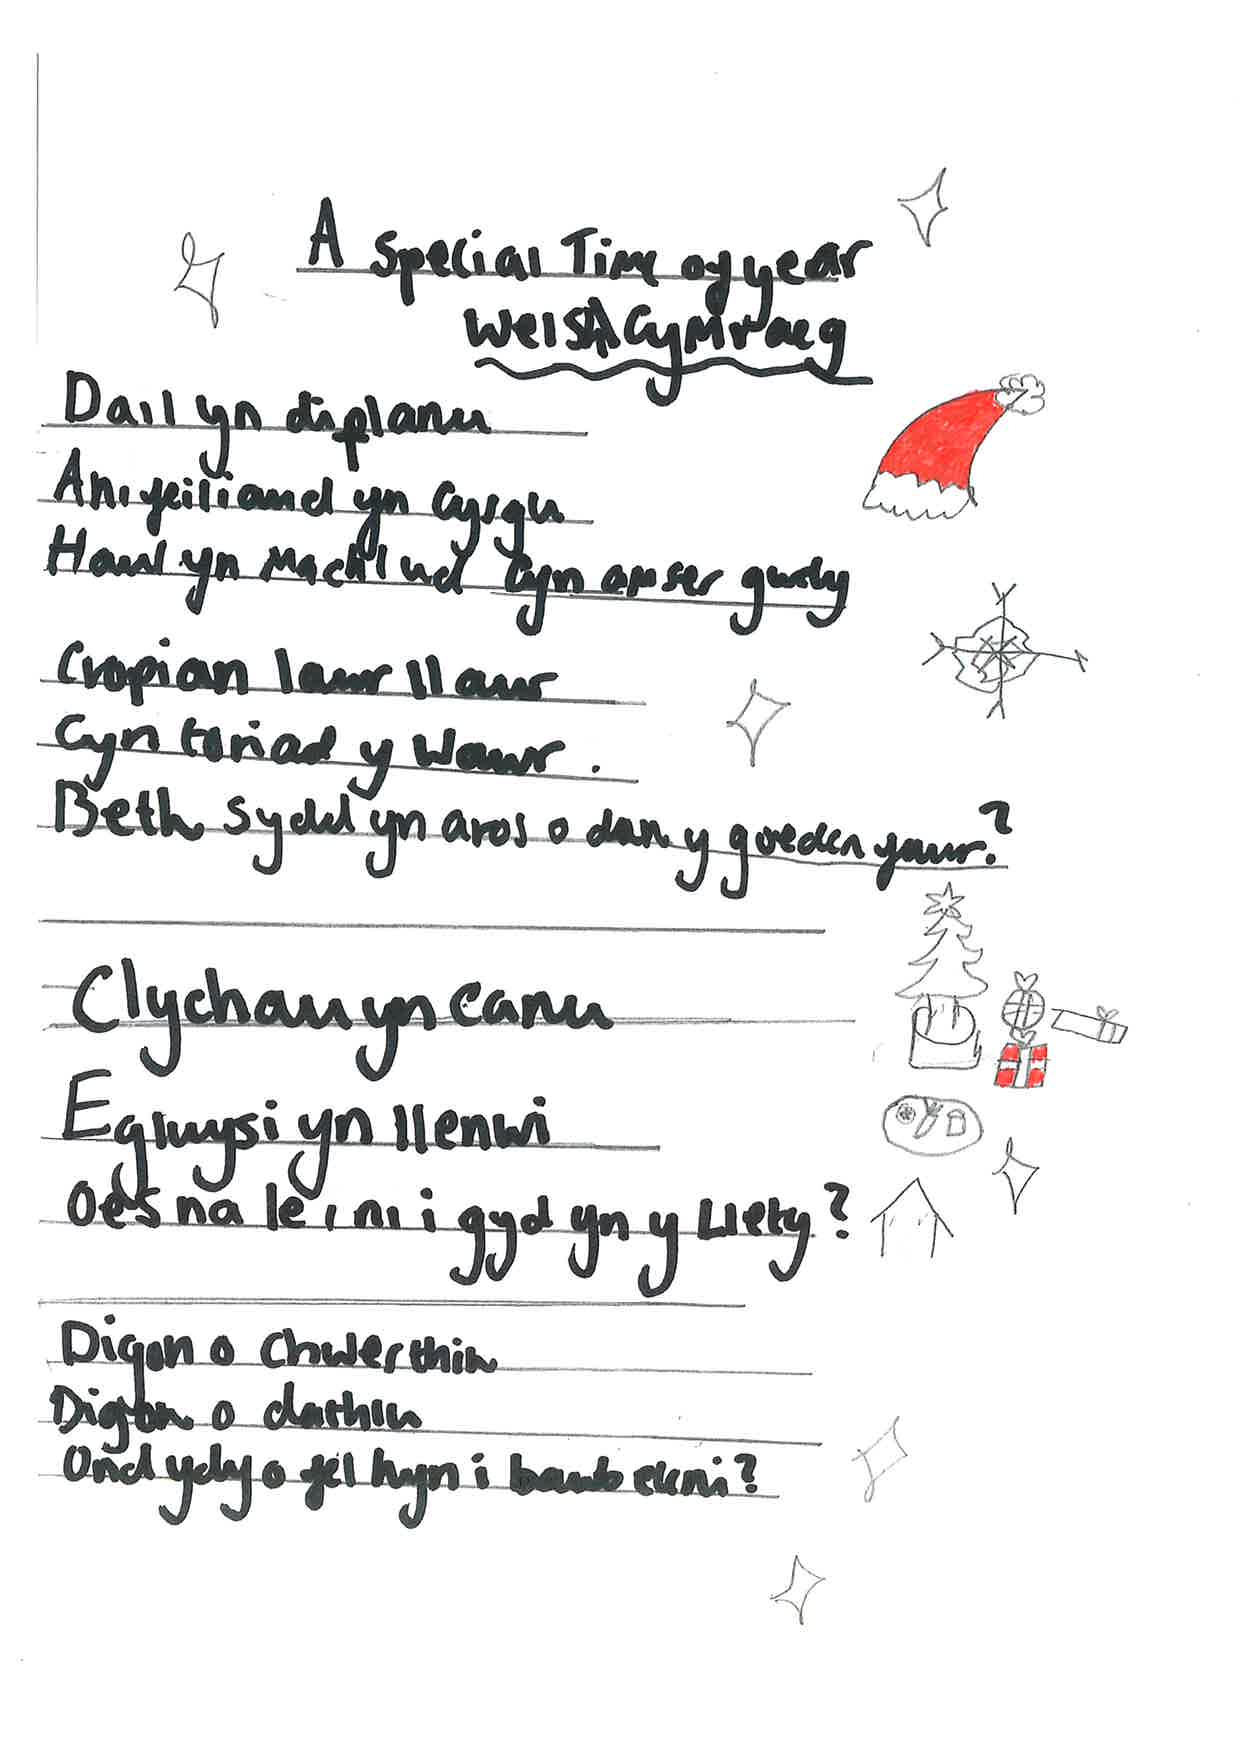 A special Time of year
Welsh Cymraeg
Dail yn diflanu
Anifeiliand yn cysgu
Haul yn Machlud cyn amser gwely
Cropian lawr llawr
Cyn toriad y Wawr.
Beth sydd yn aros o dan y goeden fawr?
Clychau yn canu
Eglwysi yn llenwi
Oes na le i ni i gyd yn y Llety?
Digon o chwerthin
Digon o dathlu
Ond ydy o fel hyn i bawb eleni?